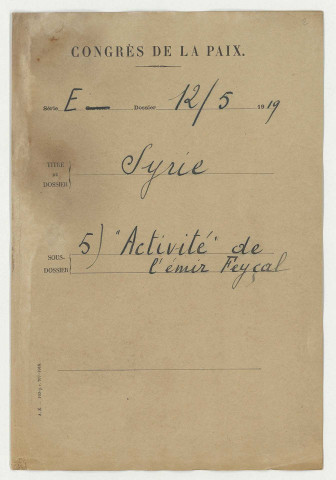 CONGRÈS DE LA PAIX.
Série E Dossier 12/5 1919
TITRE DU DOSSIER Syrie
SOUS-DOSSIER 5) "Activité" de
l'émir Feyçal